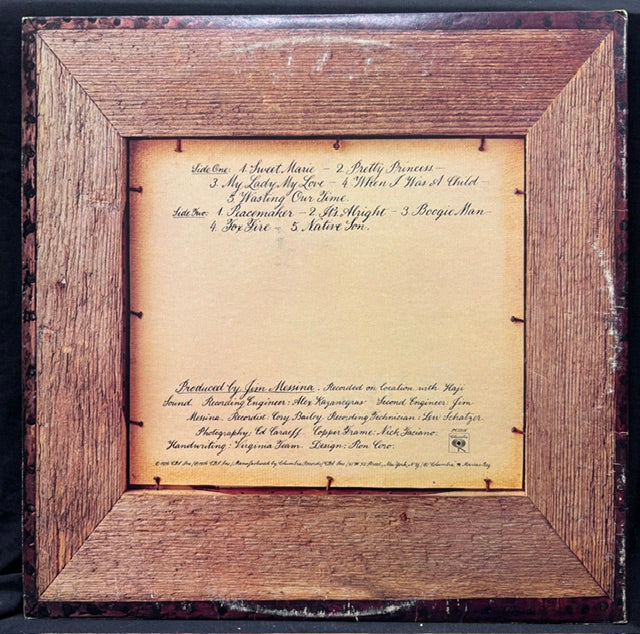 Side One: 1. Sweet Marie – 2. Pretty Princess –
3. My Lady, My Love – 4. When I Was A Child –
5. Wasting Our Time.
Side Two: 1. Peacemaker – 2. It's Alright – 3. Boogie Man –
4. Fox Fire – 5. Native Son.
Produced by Jim Messina. Recorded on Location with Haji
Sound. Recording Engineer: Alex Kazanegras Second Engineer: Jim
Messina. Recordist: Cory Bailey Recording Technician: Lew Schatzer.
Photography: Ed Caraeff. Copper Frame: Nick Faciano.
Handwriting: Virginia Team. Design: Ron Coro.
© 1976 CBS Inc./ ℗ 1976 CBS Inc./ Manufactured by Columbia Records/ CBS Inc./ 51 W. 52 Street, New York, N.Y./ Columbia, Marcas Reg.